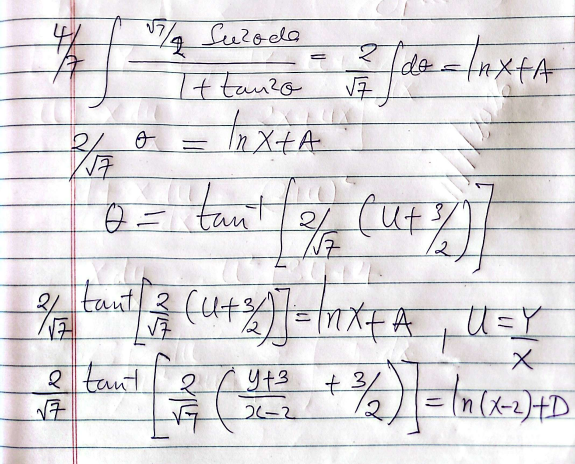 4/7 ∫ √7/2 Sec²θdθ / 1 + tan²θ = 2/√7 ∫dθ = lnX+A
2/√7 θ = lnX+A
θ = tan⁻¹ [2/√7 (U+3/2)]
2/√7 tan⁻¹[2/√7 (U+3/2)] = lnX+A , U = Y/X
2/√7 tan⁻¹ [2/√7 (y+3/x-2 + 3/2)] = ln(x-2)+D